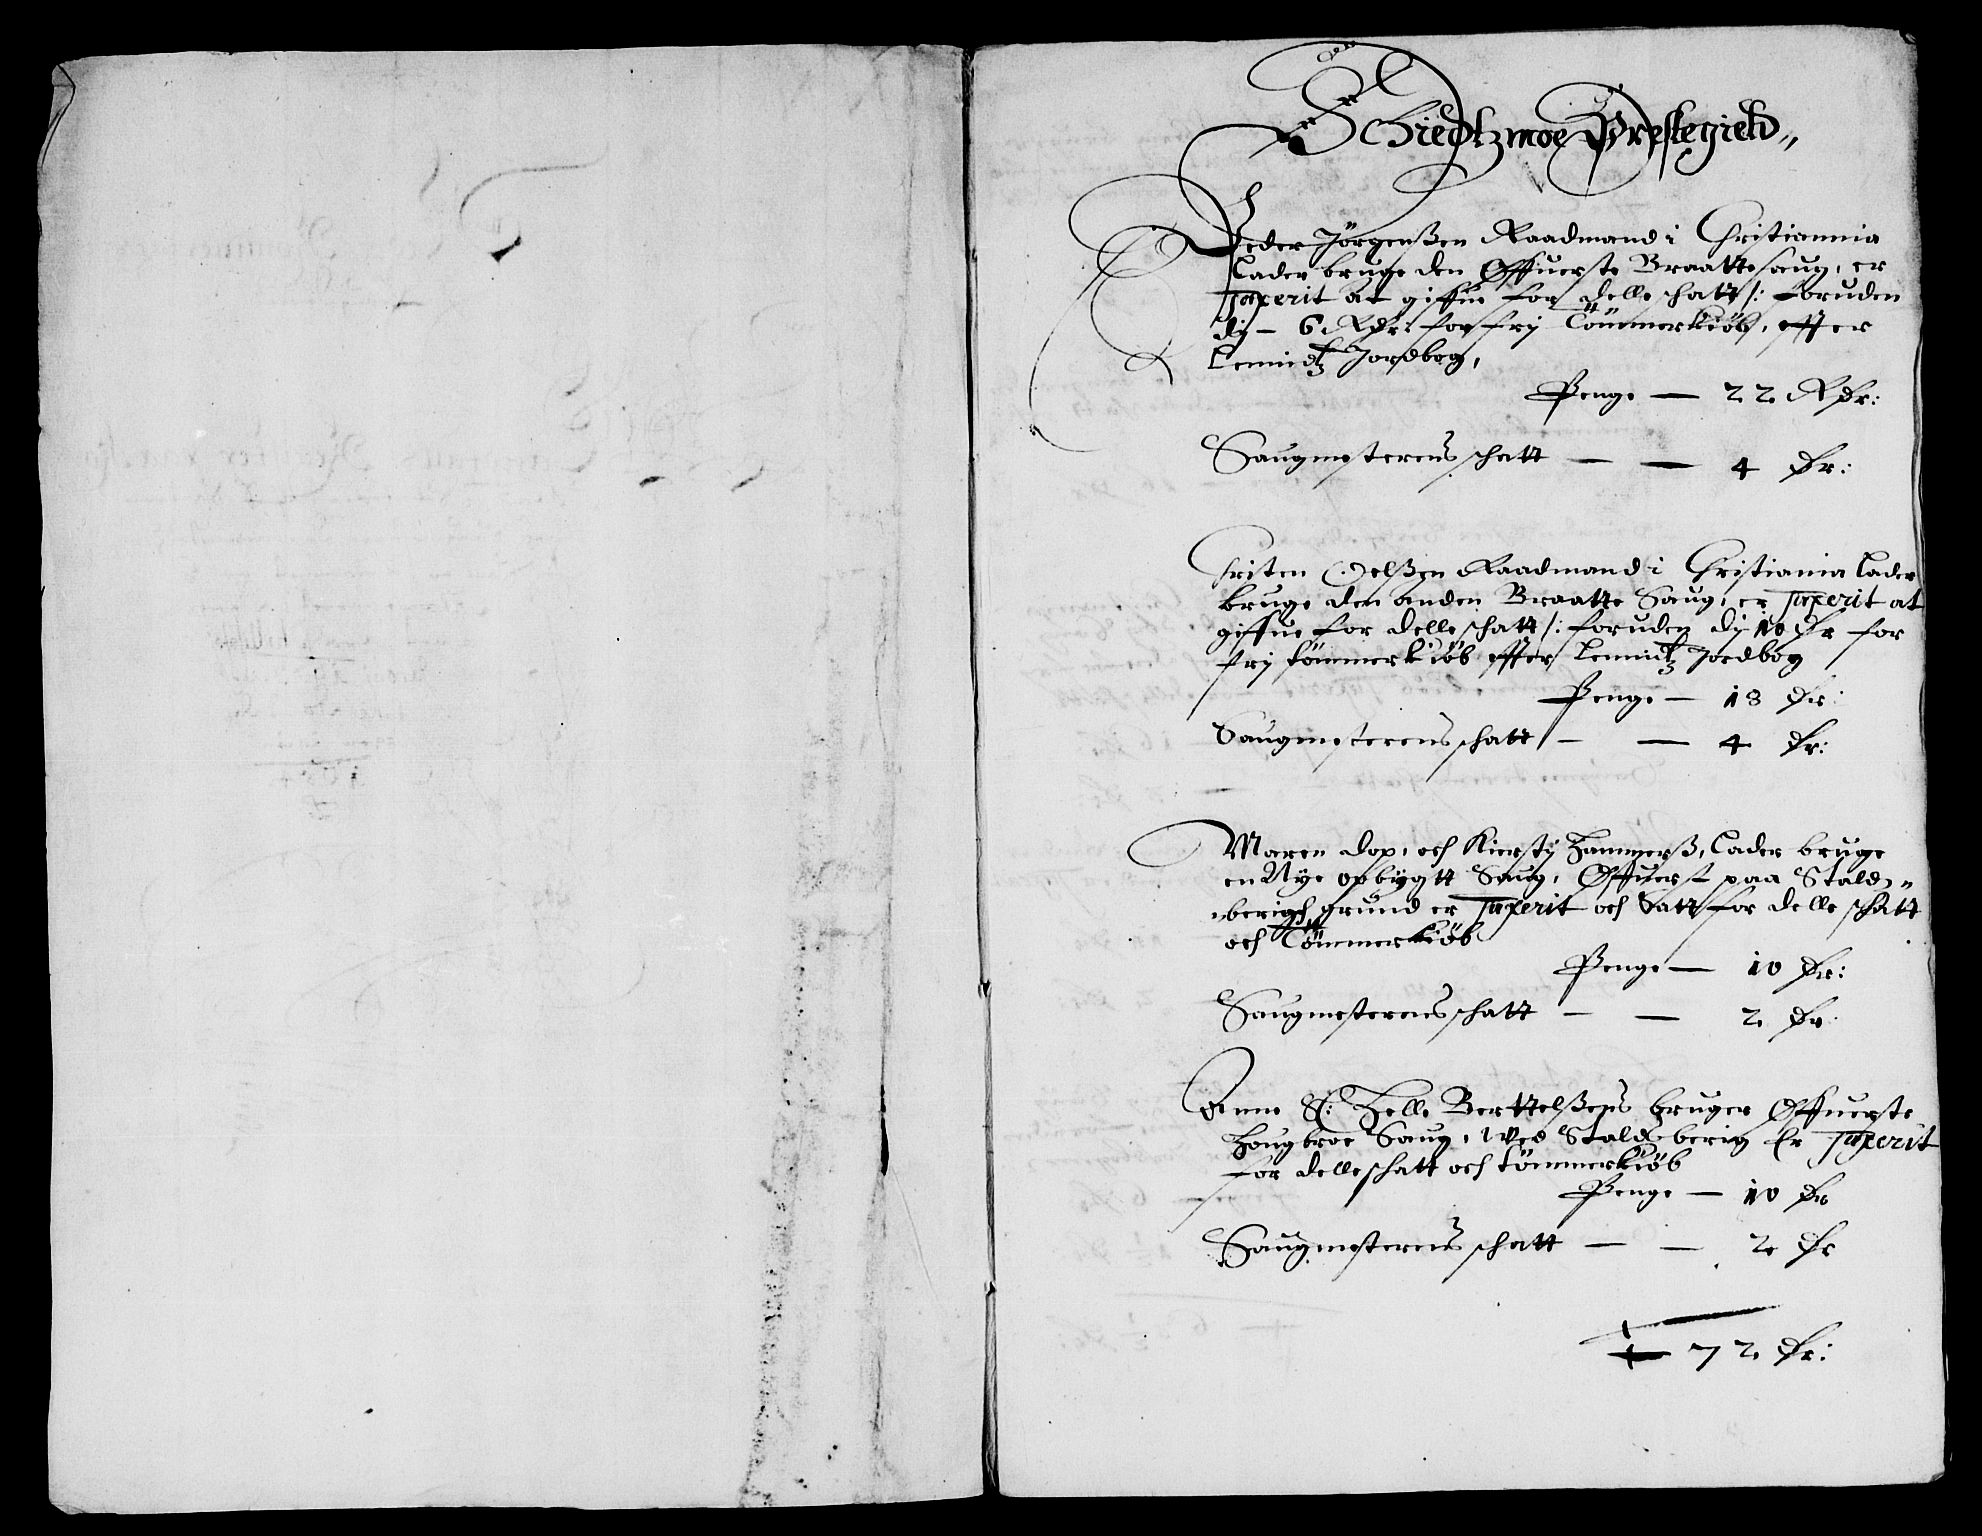 Schiedtzmoe Prestegield„
Peder Jörgenßen Raadmand i Christiannia
Lader bruge den Øffuerste Braatte saug, er
Taxerit at giffue for delle schatt /: foruden
dy — 6 Rdr: for fry Tömmerkiöb, effter
Lennidtz Jordbog,
Penge — 22 Rdr:
Saugmesterens schatt — — 4 dr:
Christen Oelßen Raadmand i Christiania Lader
bruge den anden Braatte Saug, er Taxerit at
giffue for delle schatt /: foruden dy 10 dr for
fry tömmerkiöb effter Lennidtz Jordbog
Penge — 18 dr:
Saugmesterens schatt — — 4 dr:
Maren dop, och Kiersty Hammerß, Lader bruge
en Nye opbygtt Saug, Øffuerst paa Staldz„
„berigh grund er Taxerit och Satt for delle schatt
och Tömmerkiöb
Penge — 10 dr:
Saugmesterens schatt — — 2 dr:
Anne S: Helle Berttelßens bruger Øffuerste
Hougbroe Saug, wed Staldzberig Er Taxerit
for delleschatt och tömmerkiöb
Penge — 10 dr
Saugmesterens schatt — — 2 dr
72 dr: